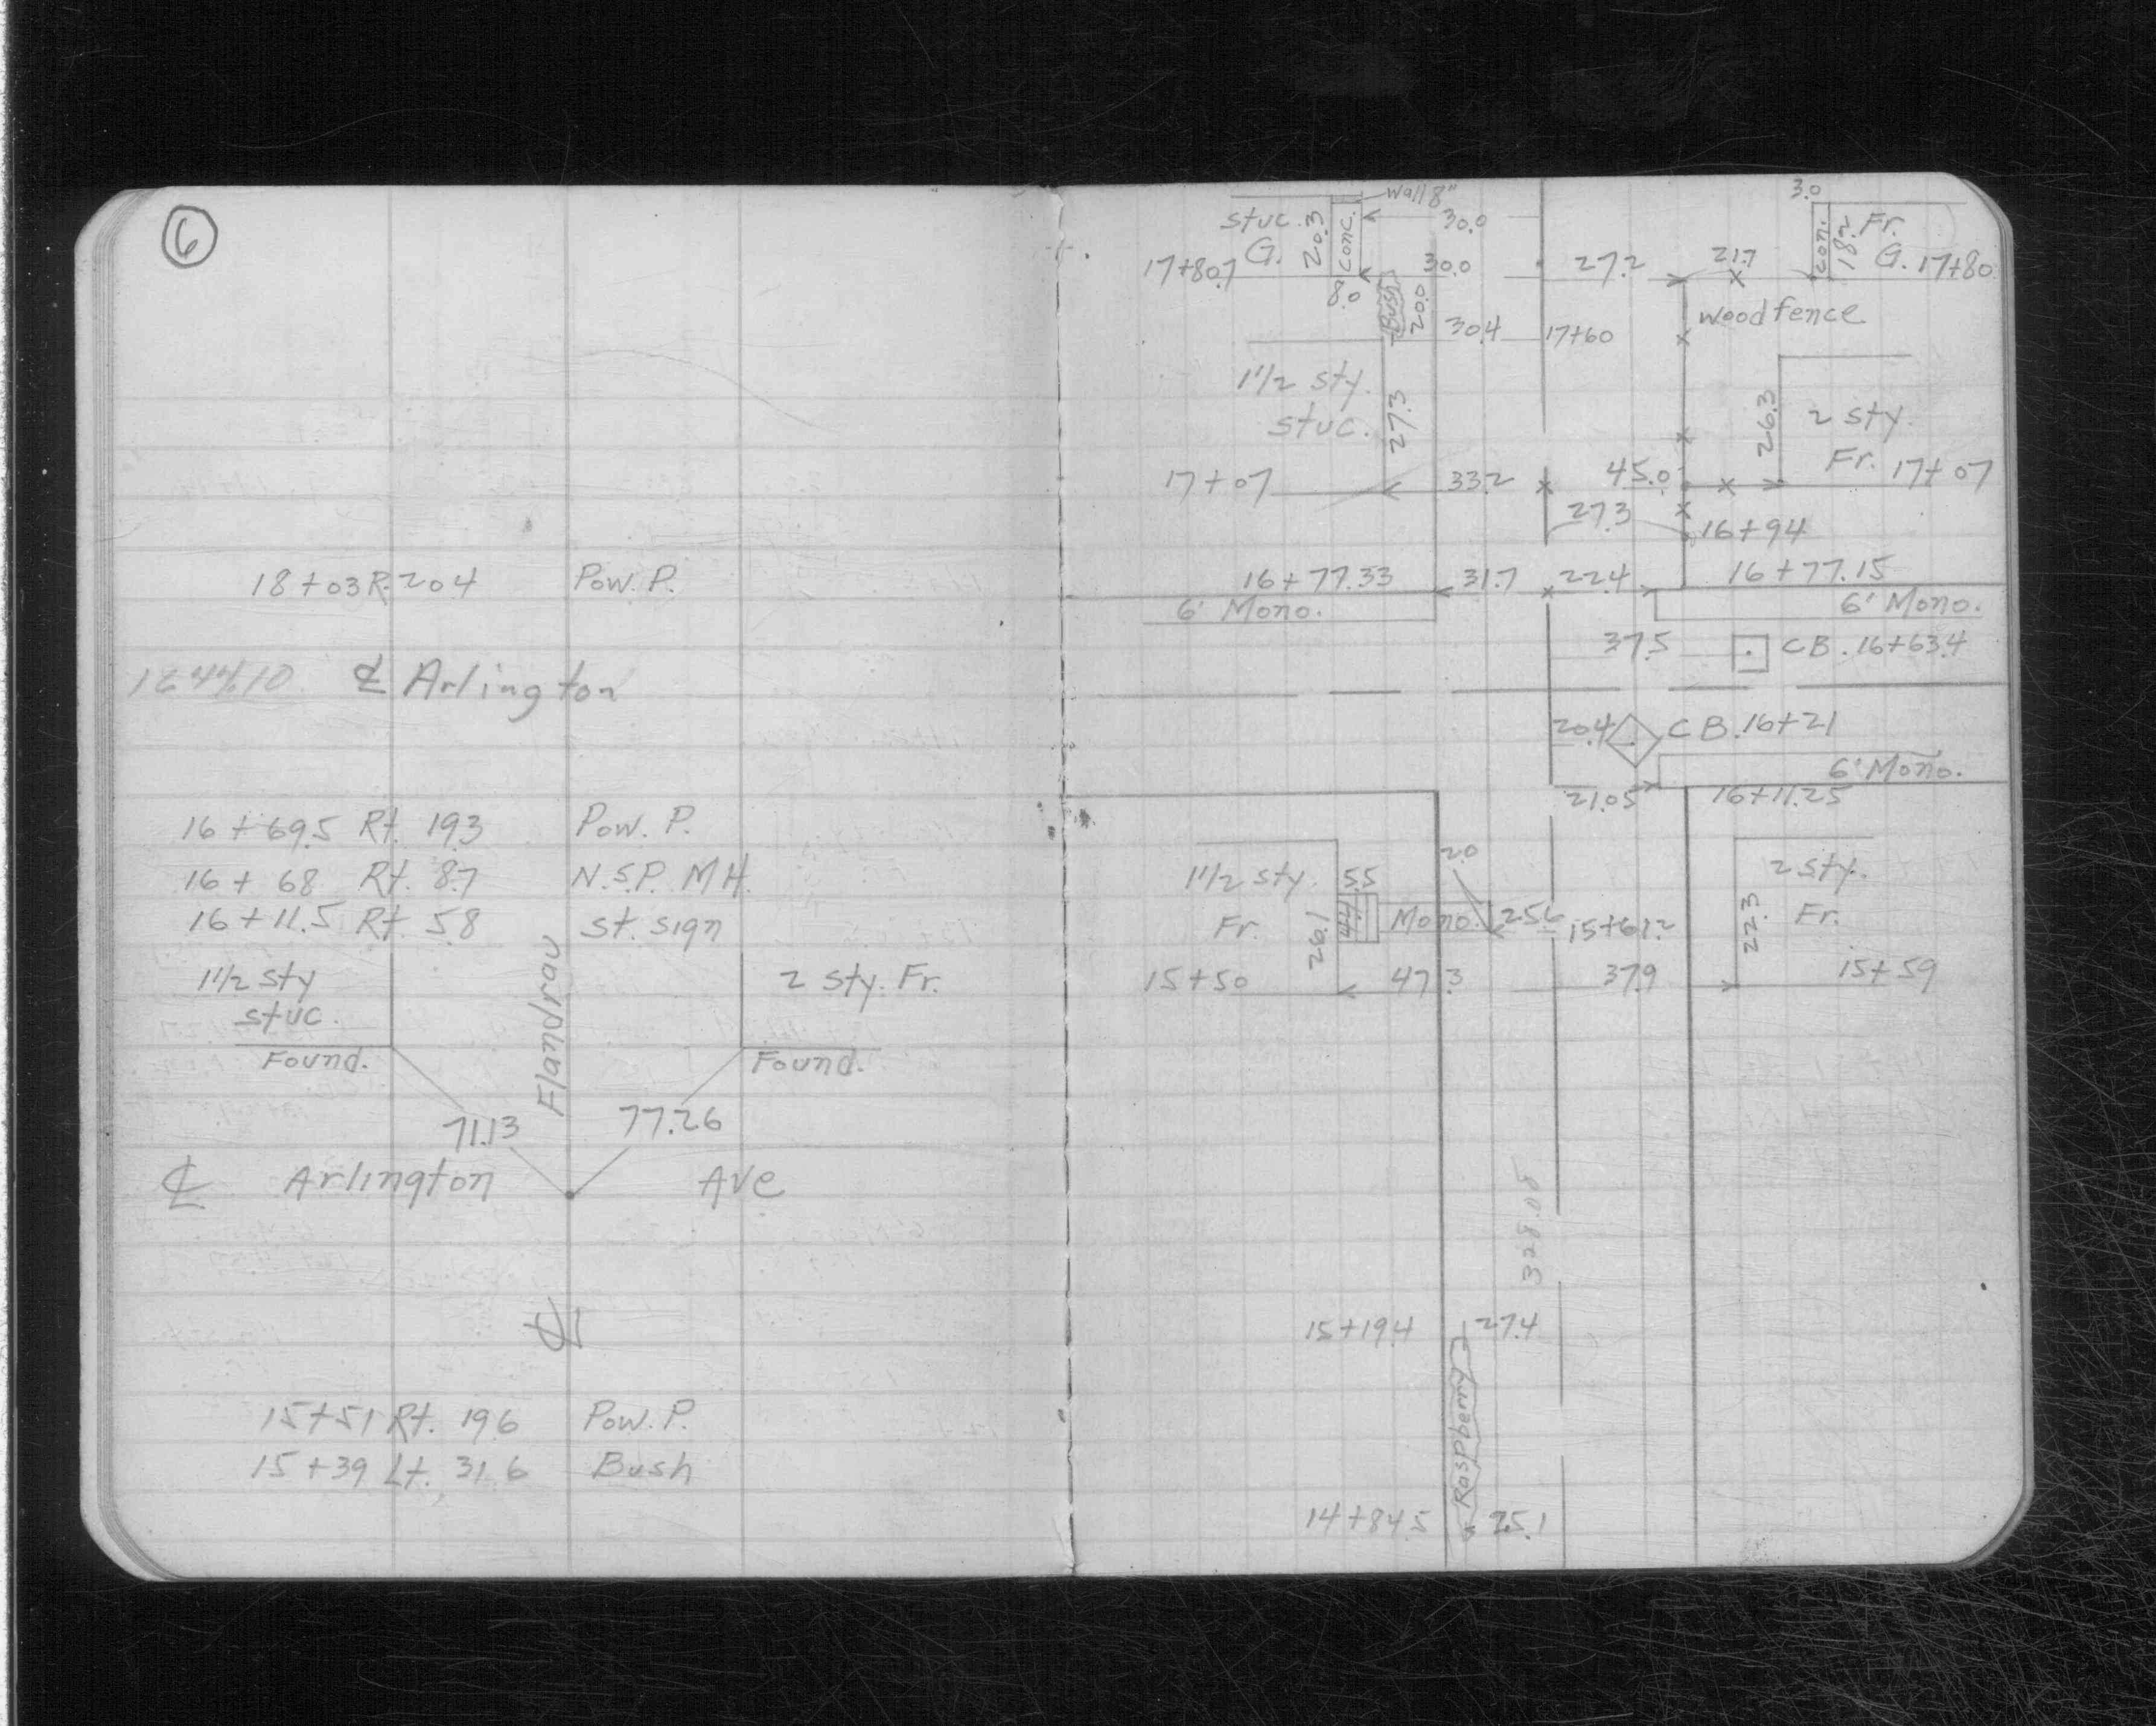 6
18+03 R. 20.4 Pow. P.
℄ Arlington
16+69.5 Rt. 19.3 Pow. P.
16+68 Rt. 8.7 N.S.P. MH.
16+11.5 Rt. 5.8 St. sign
1 1/2 sty 2 sty. Fr.
stuc.
Found. Found.
Flandrau
71.13 77.26
℄ Arlington Ave
℄
15+51 Rt. 19.6 Pow. P.
15+39 Lt. 31.6 Bush
Wall 8" 3.0
stuc. 20.3 conc. 30.0 con. 18.2 Fr.
17+80.7 G. 30.0 27.2 21.7 G. 17+80
8.0 Bush 20.0 wood fence
30.4 17+60
1 1/2 sty. 27.3 26.3 2 sty.
stuc. Fr.
17+07 33.2 45.0 17+07
27.3 16+94
16+77.33 31.7 22.4 16+77.15
6' Mono. 6' Mono.
37.5 CB. 16+63.4
20.4 CB. 16+21
6' Mono.
21.05 16+11.25
2.0
1 1/2 sty. 5.5 2 sty.
Fr. 26.1 Mono. 25.6 15+61.2 22.3 Fr.
15+50 47.3 37.9 15+59
328.08
15+19.4 27.4
Raspberry
14+84.5 25.1